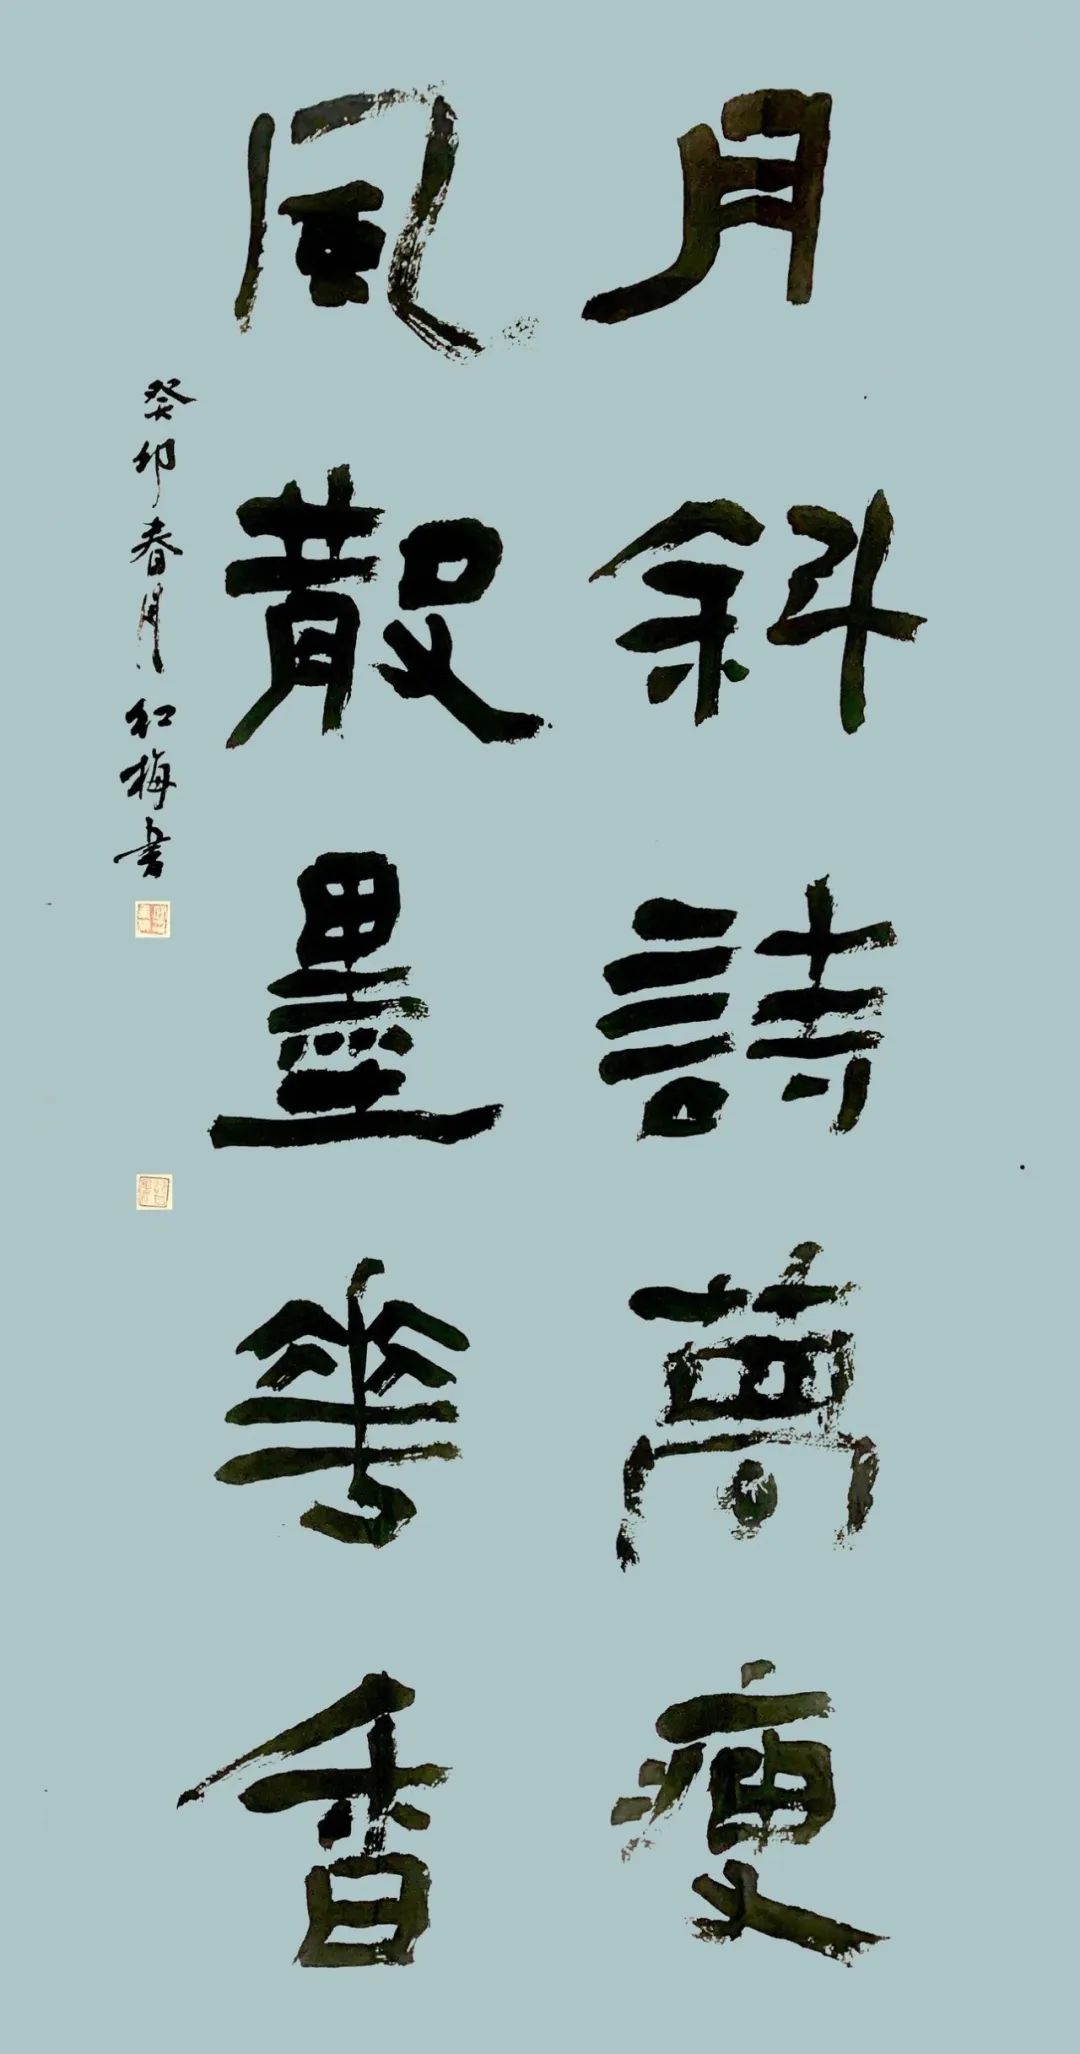 月斜詩夢瘦
風散墨華香
癸卯春月紅梅書